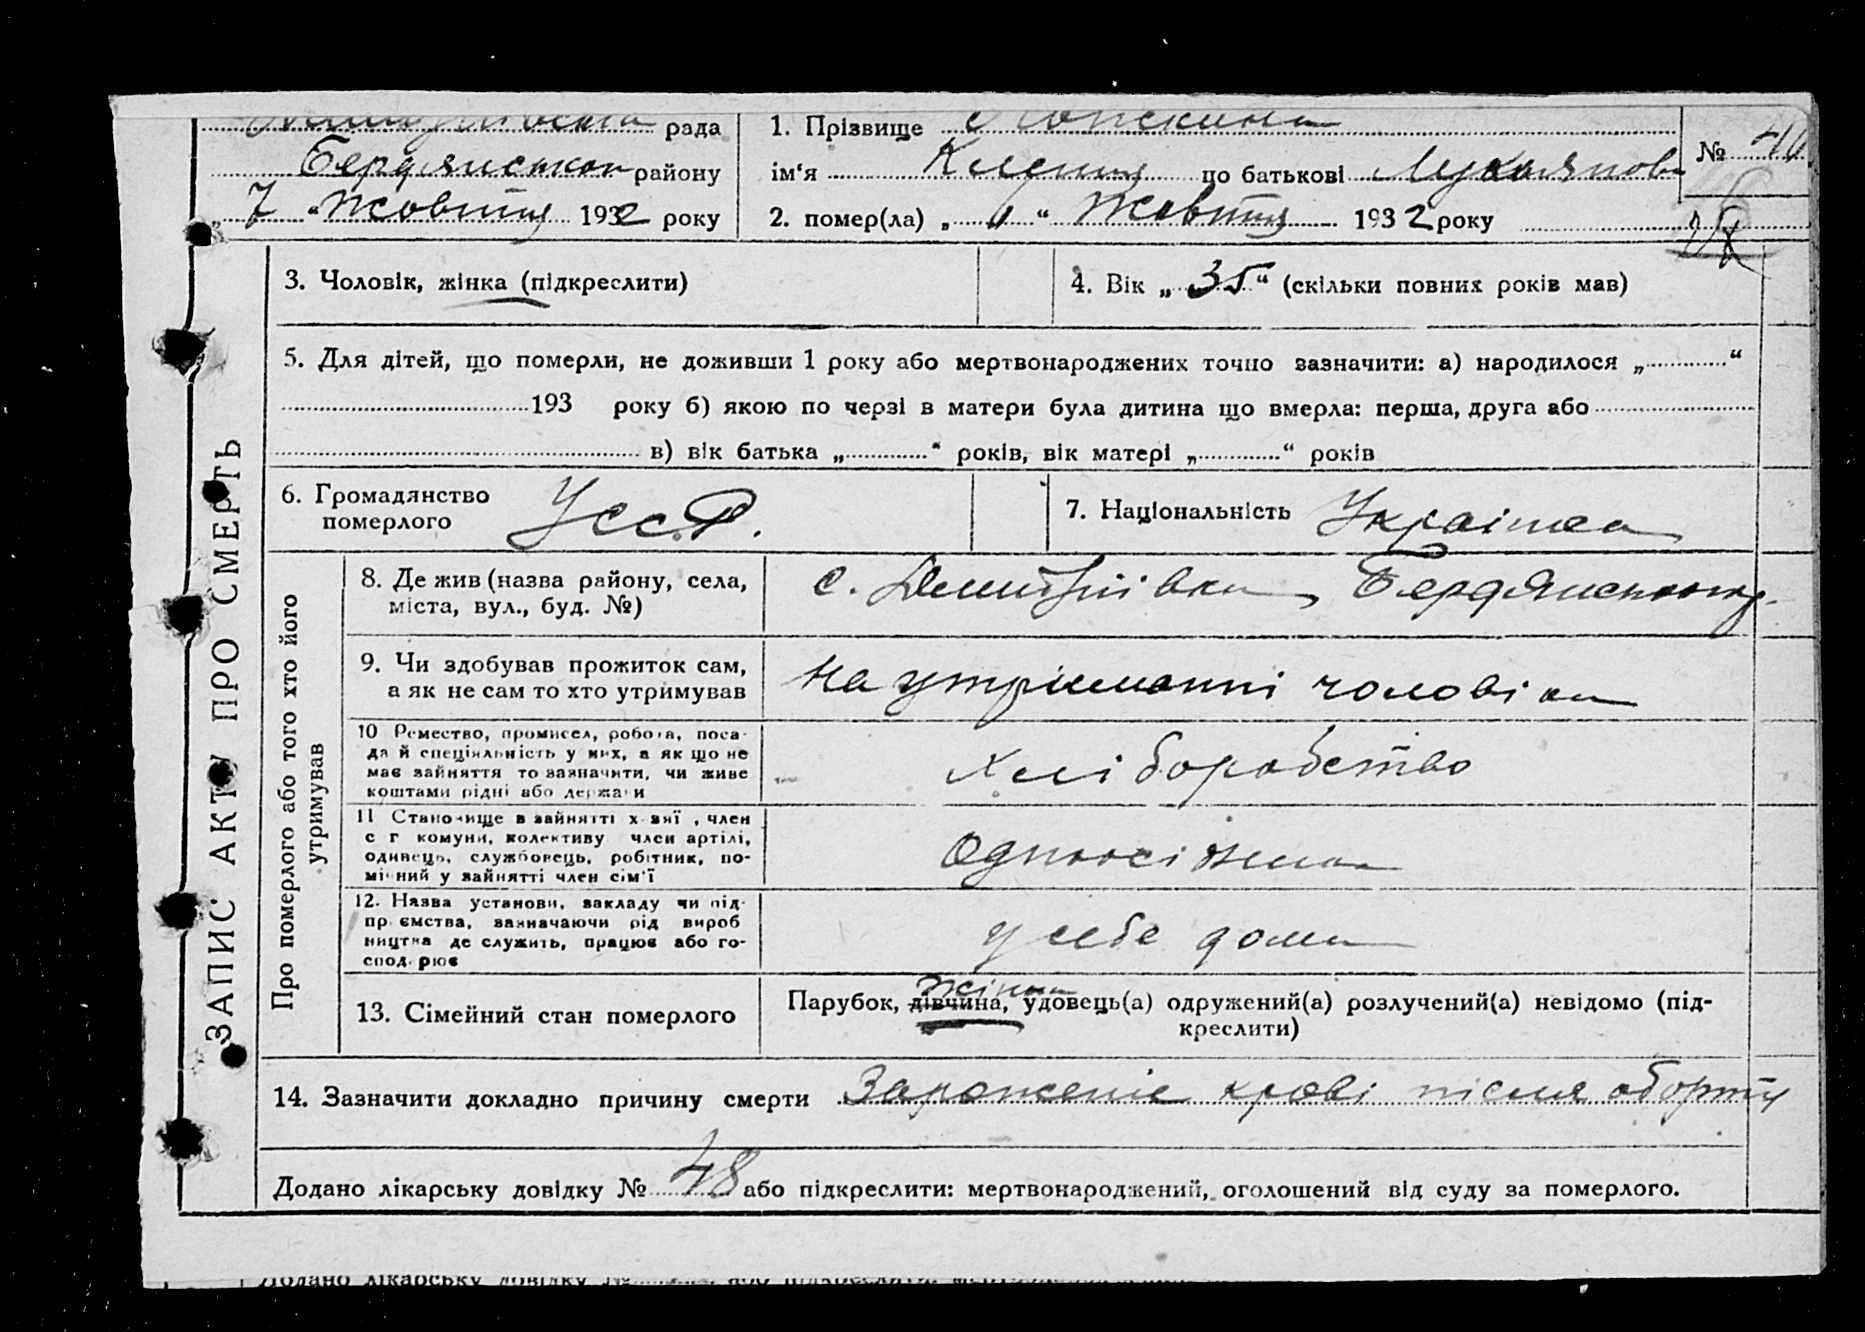 рада
1. Прізвище
№
Бердянського району
ім'я Ксенія по батькові
„ 7 “ Жовтня 1932 року
2. помер(ла) „ “ Жовтня 1932 року
3. Чоловік, жінка (підкреслити)
4. Вік „ 35 “ (скільки повних років мав)
5. Для дітей, що померли, не доживши 1 року або мертвонароджених точно зазначити: а) народилося „ “
193 року б) якою по черзі в матери була дитина що вмерла: перша, друга або
в) вік батька „ “ років, вік матері „ “ років
6. Громадянство
померлого
УССР.
7. Національність Українка
ЗАПИС АКТУ ПРО СМЕРТЬ
Про померлого або того хто його
утримував
8. Де жив (назва району, села,
міста, вул., буд. №)
с. Дмитрівка, Бердянського
9. Чи здобував прожиток сам,
а як не сам то хто утримував
На утриманні чоловіка
10 Ремество, промисел, робота, поса-
да й спеціяльність у них, а як що не
має зайняття то зазначити, чи живе
коштами рідні або держави
хліборобство
11 Становище в зайнятті хазяї, член
с г комуни, колективу член артілі,
одинець, службовець, робітник, по-
мічний у зайнятті член сім'ї
Одноосібниця
12. Назва установи, закладу чи під-
приємства, зазначаючи рід вироб
ництва де служить, працює або го-
сподарює
у себе дома
13. Сімейний стан померлого
Жінка
Парубок, дівчина, удовець(а) одружений(а) розлучений(а) невідомо (під-
креслити)
14. Зазначити докладно причину смерти Зараженіе крові після аборту
Додано лікарську довідку № 48 або підкреслити: мертвонароджений, оголошений від суду за померлого.